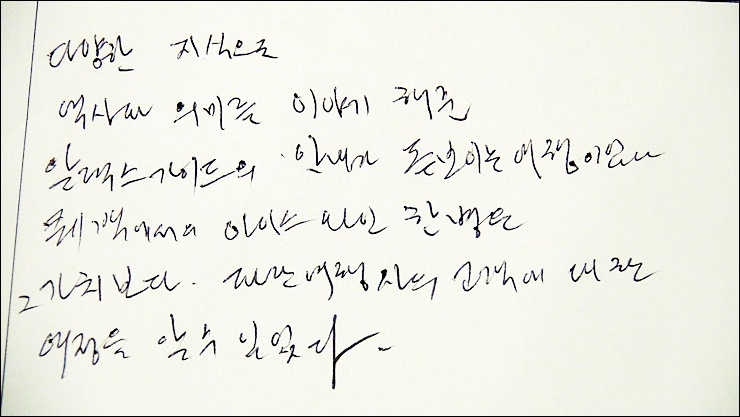 다양한 지식으로
역사와 의미를 이야기 해준
알렉스가이드의 안내가 돋보이는 여행이었다
퀘백에서의 아이스 와인 한병은
그 가치보다. 파란여행사의 고객에 대한
애정을 알 수 있었다.